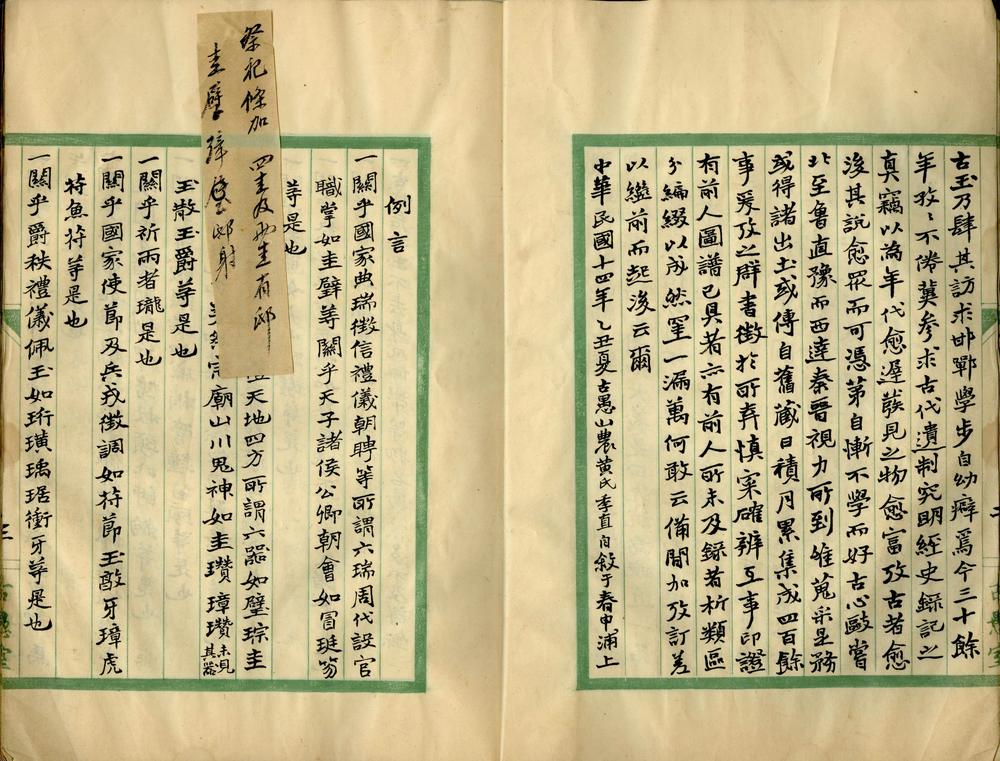 古玉乃肆其訪求邯鄲學步自幼癖焉今三十餘
年孜孜不倦冀參求古代遺制究明經史錄記之
真竊以為年代愈湮發見之物愈富攷古者愈
後其說愈眾而可憑第自慚不學而好古心敺嘗
北至魯直豫而西達秦晉視力所到雖蒐采是務
或得諸出土或傳自舊藏日積月累集成四百餘
事爰攷之群書徵於所弆慎案確辨互事印證
有前人圖譜已具者亦有前人所未及錄者析類區
分編綴以成然罣一漏萬何敢云備間加攷訂差
以繼前而起後云爾
中華民國十四年乙丑夏古愚山農黃氏季直自敘于春申浦上
例言
一關乎國家典瑞徵信禮儀朝聘等所謂六瑞周代設官
職掌如圭璧等關乎天子諸侯公卿朝會如冒珽笏
等是也
天地四方所謂六器如璧琮圭
宗廟山川鬼神如圭瓚璋瓚未見其器
玉散玉爵等是也
一關乎祈雨者瓏是也
一關乎國家使節及兵戎徵調如符節玉敔牙璋虎
符魚符等是也
一關乎爵秩禮儀佩玉如珩璜瑀琚衝牙等是也
祭祀條加 四圭及兩圭有邸
圭璧 璋邸射
三